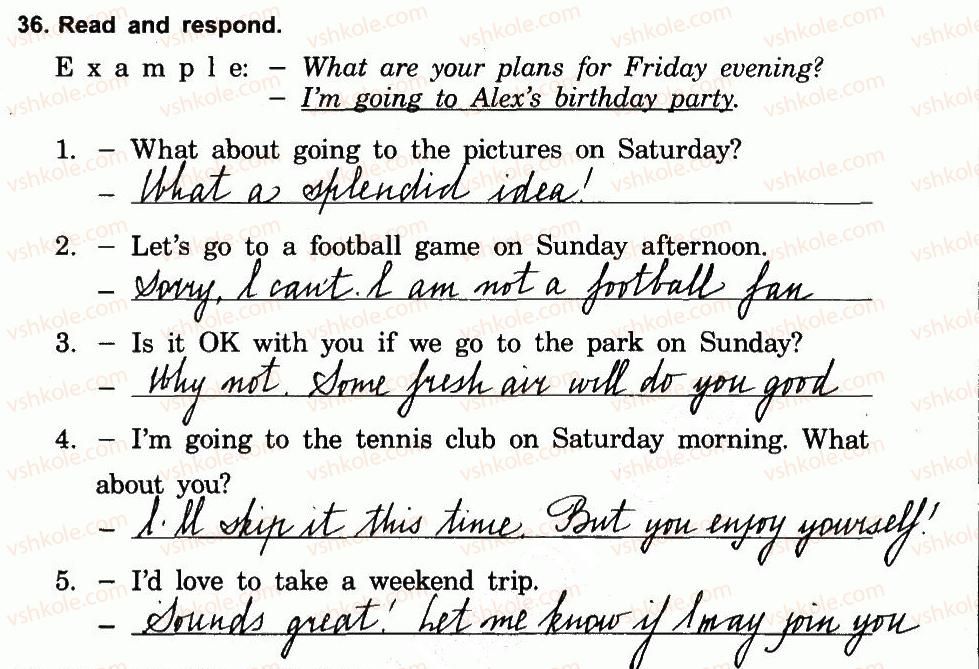 36. Read and respond.
Example: – What are your plans for Friday evening?
– I'm going to Alex's birthday party.
1. – What about going to the pictures on Saturday?
– What a splendid idea!
2. – Let's go to a football game on Sunday afternoon.
– Sorry, I can't. I am not a football fan
3. – Is it OK with you if we go to the park on Sunday?
– Why not. Some fresh air will do you good
4. – I'm going to the tennis club on Saturday morning. What
about you?
– I'll skip it this time. But you enjoy yourself!
5. – I'd love to take a weekend trip.
– Sounds great! Let me know if I may join you
vshkole.com